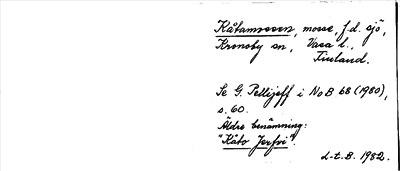 Kåtamossen, mosse, f.d. sjö,
Kronoby sn, Vasa l.,
Finland.
Se G. Pellijeff i NoB 68 (1980),
s. 60.
Äldre benämning:
"Kåto Jerfvi".
L-t.B. 1982.